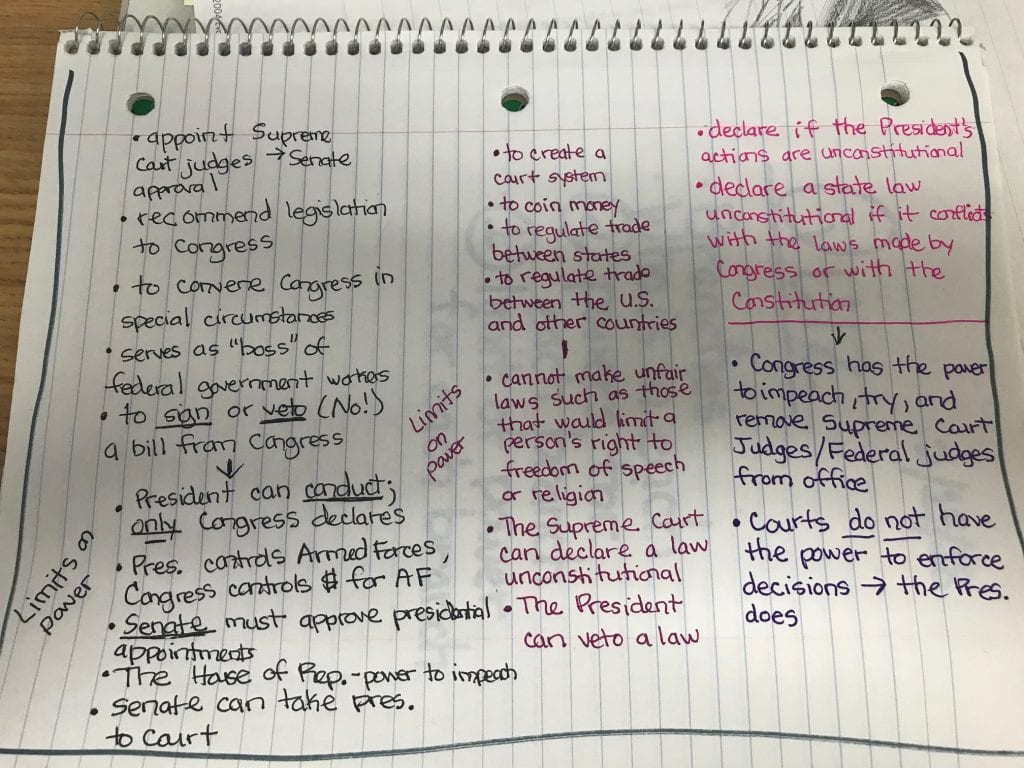 • appoint Supreme
Court judges → Senate
approval
• recommend legislation
to Congress
• to convene Congress in
special circumstances
• serves as "boss" of
federal government workers
• to sign or veto (No!)
a bill from Congress
↓
• President can conduct;
only Congress declares
• Pres. controls Armed Forces,
Congress controls $ for AF
• Senate must approve presidential
appointments
• The House of Rep. - power to impeach
• Senate can take pres.
to Court
Limits on
power
• to create a
court system
• to coin money
• to regulate trade
between states
• to regulate trade
between the U.S.
and other countries
• cannot make unfair
laws such as those
that would limit a
person's right to
freedom of speech
or religion
• The Supreme Court
can declare a law
unconstitutional
• The President
can veto a law
Limits
on
power
• declare if the President's
actions are unconstitutional
• declare a state law
unconstitutional if it conflicts
with the laws made by
Congress or with the
Constitution
↓
• Congress has the power
to impeach, try, and
remove Supreme Court
Judges/Federal judges
from office
• Courts do not have
the power to enforce
decisions → the Pres.
does